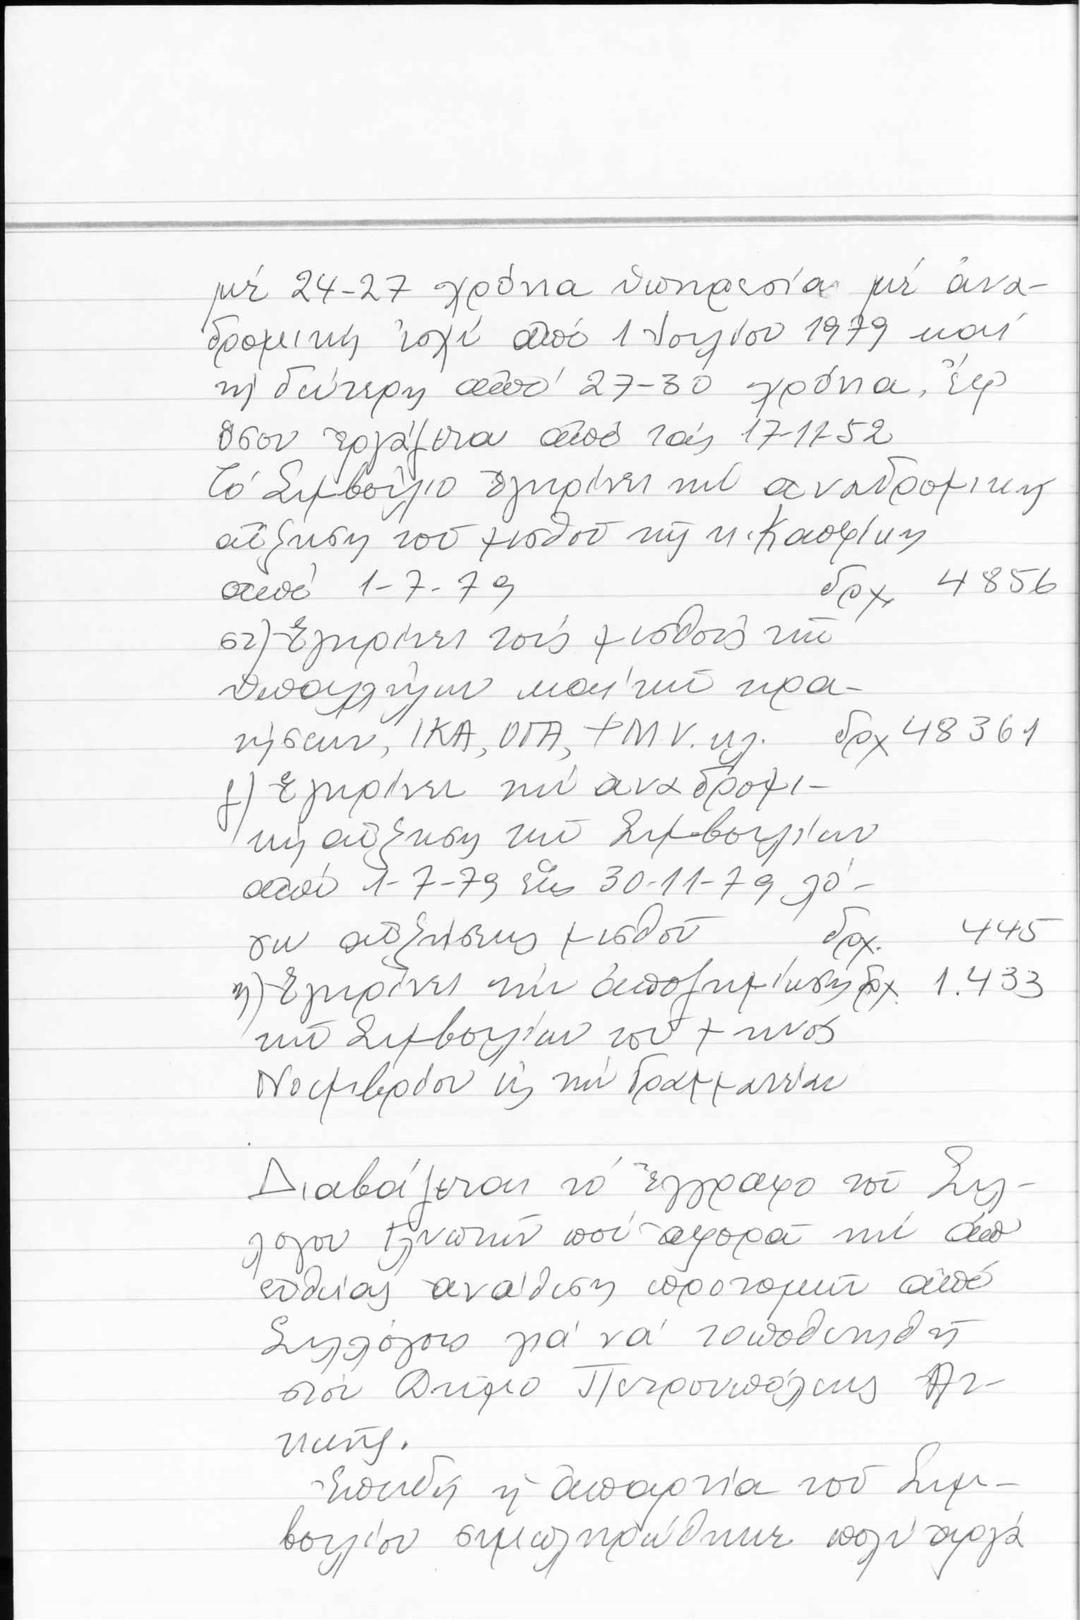 μέ 24-27 χρόνια ὑπηρεσία μέ ἀνα-
δρομική ἰσχύ ἀπό 1 Ἰουλίου 1979 καί
τή δεύτερη ἀπό 27-30 χρόνια, ἐφ
ὅσον ἐργάζεται ἀπό τάς 17-11-52
Τό Συμβούλιο ἐγκρίνει τήν ἀναδρομική
αὔξηση τοῦ μισθοῦ τῆς κ.
ἀπό 1-7-79 δρχ. 4856
στ) Ἐγκρίνει τούς μισθούς τῶν
ὑπαλλήλων καί τῶν κρα-
τήσεων, ΙΚΑ, ΟΓΑ, κλ. δρχ 48361
ζ) Ἐγκρίνει τήν ἀναδρομι-
κή αὔξηση τῶν Συμβουλίων
ἀπό 1-7-79 ἕως 30-11-79 λό-
γω αὐξήσεως μισθοῦ δρχ. 445
η) Ἐγκρίνει τήν ἀποζημίωση δρχ. 1.433
τῶν Συμβουλίων τοῦ μηνός
Νοεμβρίου εἰς τήν Γραμματέα
Διαβάζεται τό ἔγγραφο τοῦ Συλ-
λόγου Γλυπτῶν πού ἀφορᾶ τήν ἀπ
εὐθείας ἀνάθεση προτομῶν ἀπό
Συλλόγους γιά νά τοποθετηθῆ
στόν Δῆμο Πετρουπόλεως Ἀτ-
τικῆς.
Ἐπειδή ἡ ἀπαρτία τοῦ Συμ-
βουλίου συμπληρώθηκε πολύ ἀργά